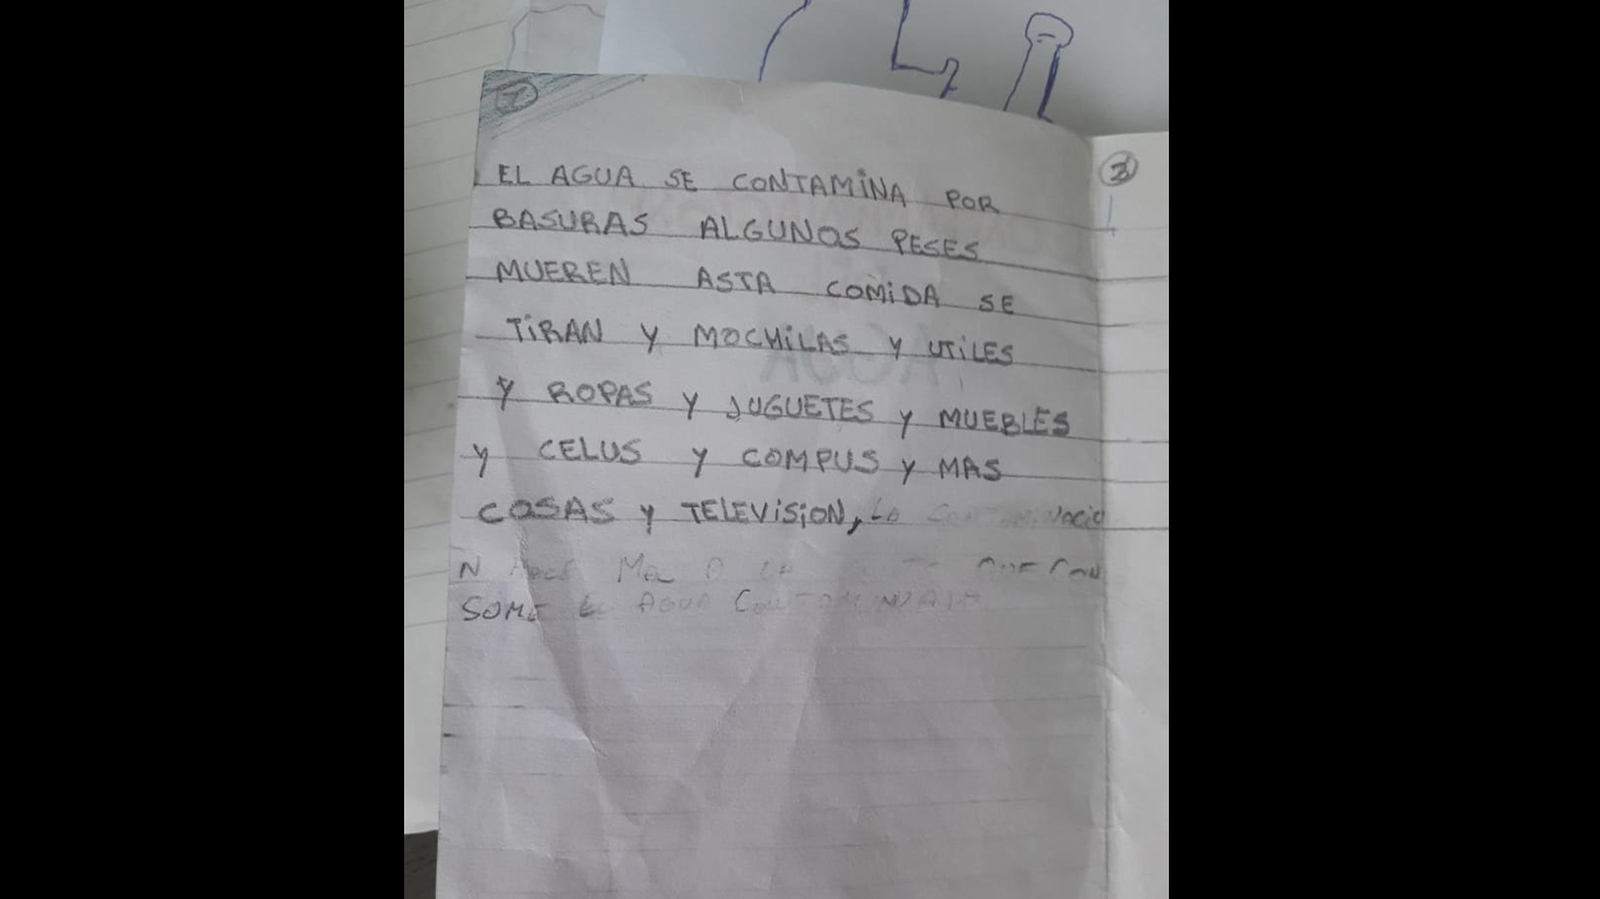 1
EL AGUA SE CONTAMINA POR
BASURAS ALGUNOS PESES
MUEREN ASTA COMIDA SE
TIRAN Y MOCHILAS Y UTILES
Y ROPAS Y JUGUETES Y MUEBLES
Y CELUS Y COMPUS Y MAS
COSAS Y TELEVISION, La CONTAMINACIO
N HACE MAL A LA QUE CON
SOME AGUA CONTAMINADA
3
AGUA